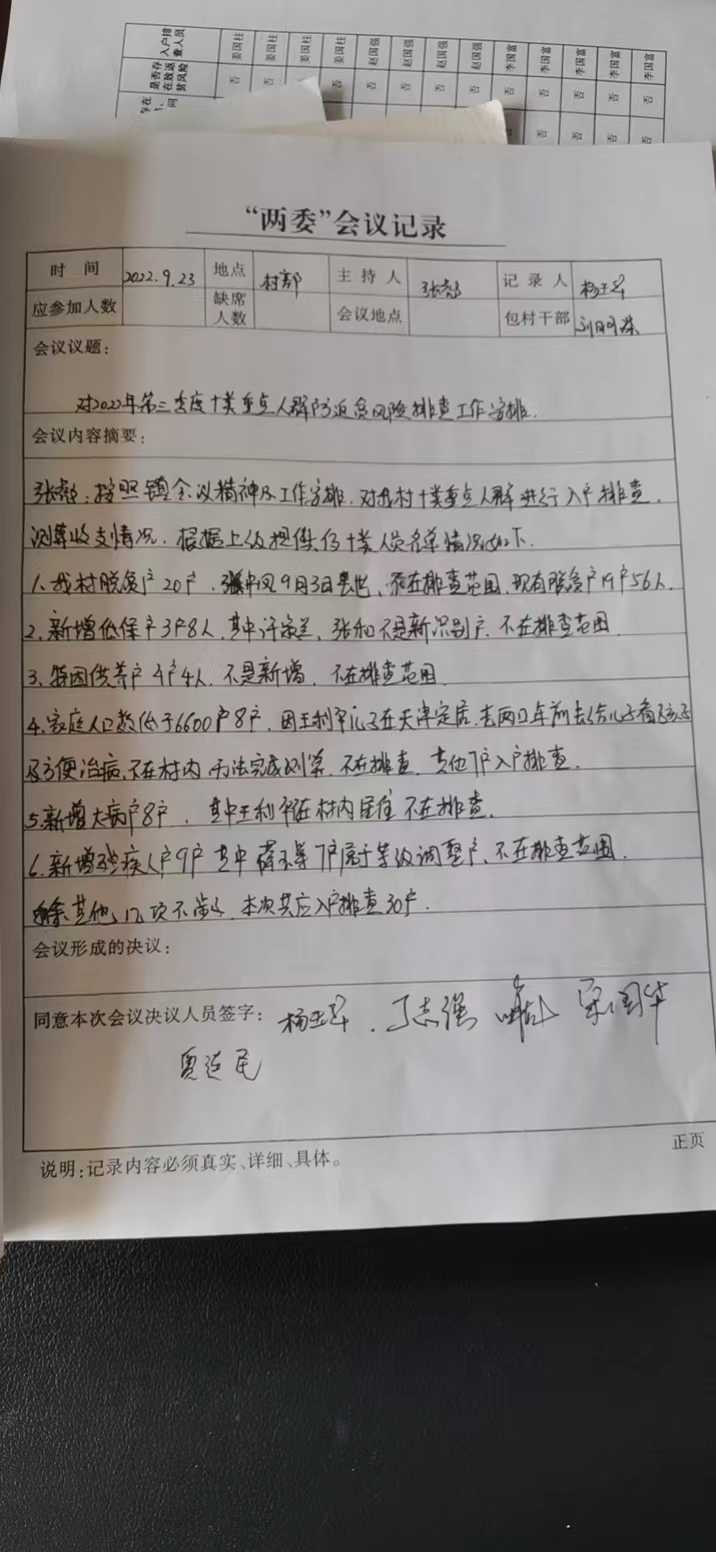 入户排查人员 姜国柱 姜国柱 姜国柱 姜国柱 赵国强 赵国强 赵国强 赵国强 李国富 李国富 李国富 李国富 李国富
是否存在致返贫风险 否 否 否 否 否 否 否 否 否 否 否 否 否
“两委”会议记录
时间 2022.9.23 地点 村部 主持人 记录人
应参加人数 缺席人数 会议地点 包村干部
会议议题：
对2022年第三季度十类重点人群防返贫风险排查工作安排.
会议内容摘要：
按照镇会议精神及工作安排.对我村十类重点人群进行入户排查.
测算收支情况.根据上级提供的十类人员名单情况如下.
1.我村脱贫户20户. 9月3日去世、不在排查范围.现有脱贫户19户56人.
2.新增低保户3户8人.其中许 、张和不是新识别户.不在排查范围
3、特困供养户4户4人.不是新增.不在排查范围.
4.家庭人口数低于6600户8户.因王利 儿子在天津定居.去两口年前去给儿子看孩子
及方便治病,不在村内 无法完成测算.不在排查.其他7户入户排查.
5.新增大病户8户.其中王利 在村内居住 不在排查.
6.新增残疾人户9户 其中 等7户属于等级调整户、不在排查范围.
其他几项不涉及.本次共应入户排查30户.
会议形成的决议：
同意本次会议决议人员签字： 丁志强 宋国华
说明:记录内容必须真实、详细、具体。
正页